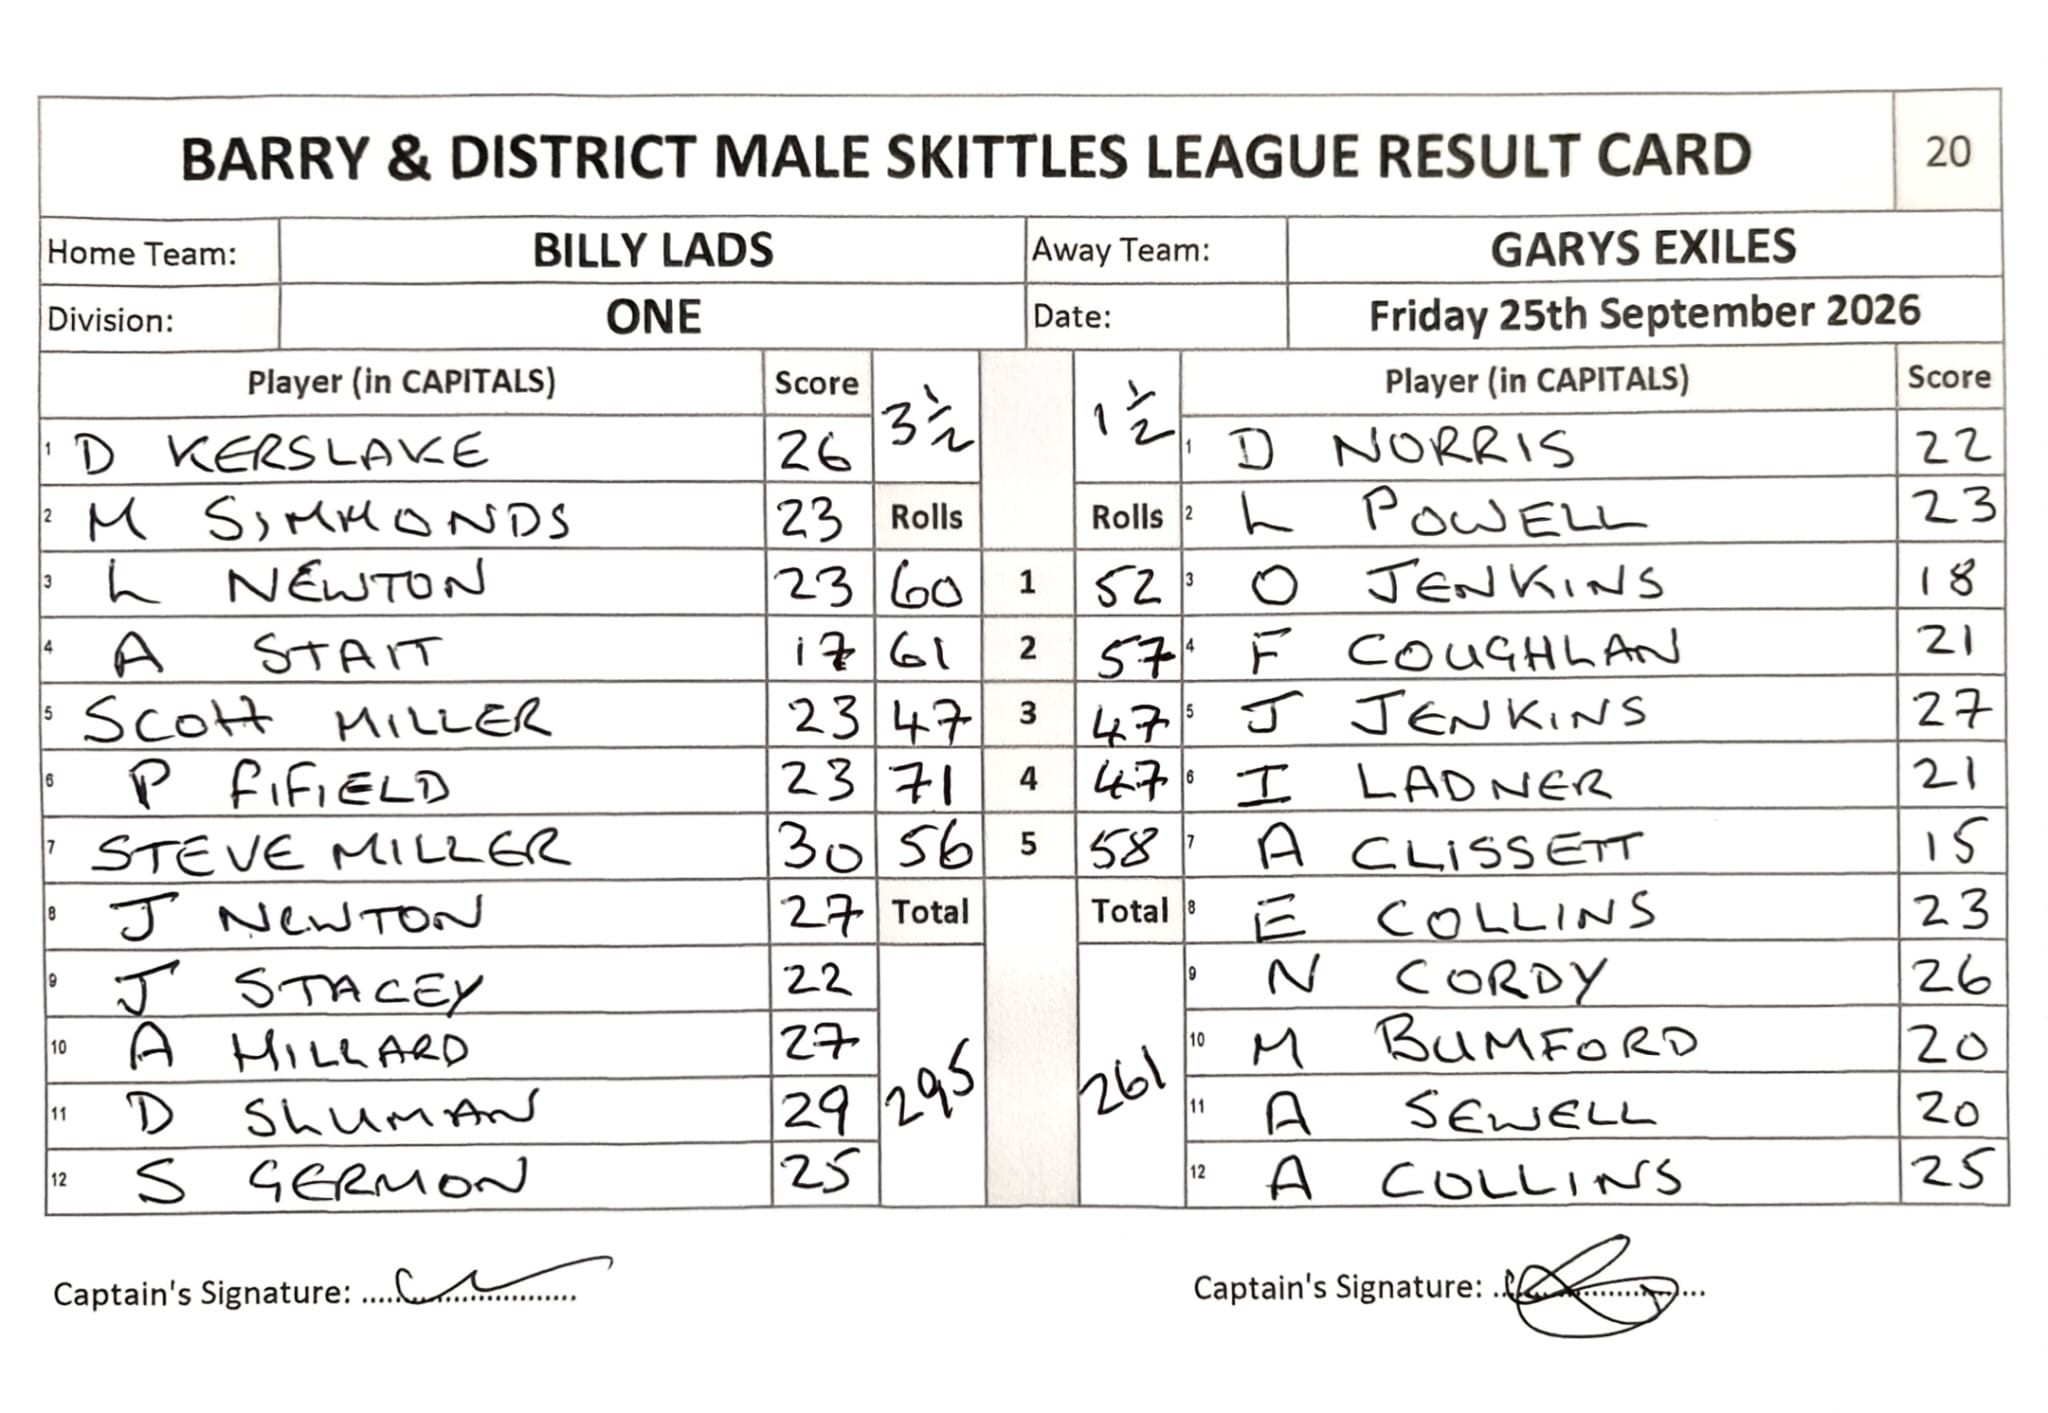 BARRY & DISTRICT MALE SKITTLES LEAGUE RESULT CARD 20
Home Team: BILLY LADS Away Team: GARYS EXILES
Division: ONE Date: Friday 25th September 2026
Player (in CAPITALS) Score 3½ 1½ Player (in CAPITALS) Score
1 D KERSLAKE 26 1 D NORRIS 22
2 M SIMMONDS 23 Rolls Rolls 2 L POWELL 23
3 L NEWTON 23 60 1 52 3 O JENKINS 18
4 A STAIT 17 61 2 57 4 F COUGHLAN 21
5 SCOTT MILLER 23 47 3 47 5 J JENKINS 27
6 P FIFIELD 23 71 4 47 6 I LADNER 21
7 STEVE MILLER 30 56 5 58 7 A CLISSETT 15
8 J NEWTON 27 Total Total 8 E COLLINS 23
9 J STACEY 22 9 N CORDY 26
10 A MILLARD 27 295 261 10 M BUMFORD 20
11 D SLUMAN 29 11 A SEWELL 20
12 S GERMON 25 12 A COLLINS 25
Captain's Signature: Captain's Signature: